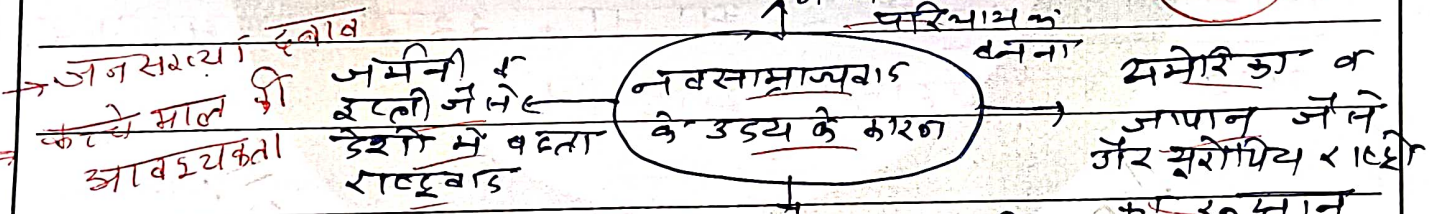 पारियायक
बनना
→ जनसंख्या दबाव
कच्चे माल की
आवश्यकता
जर्मनी व
इटली जैसे
देशों में बढता
राष्ट्रवाद
नवसाम्राज्यवाद
के उदय के कारन
अमेरिका व
जापान जैसे
गैर यूरोपिय राष्ट्रो